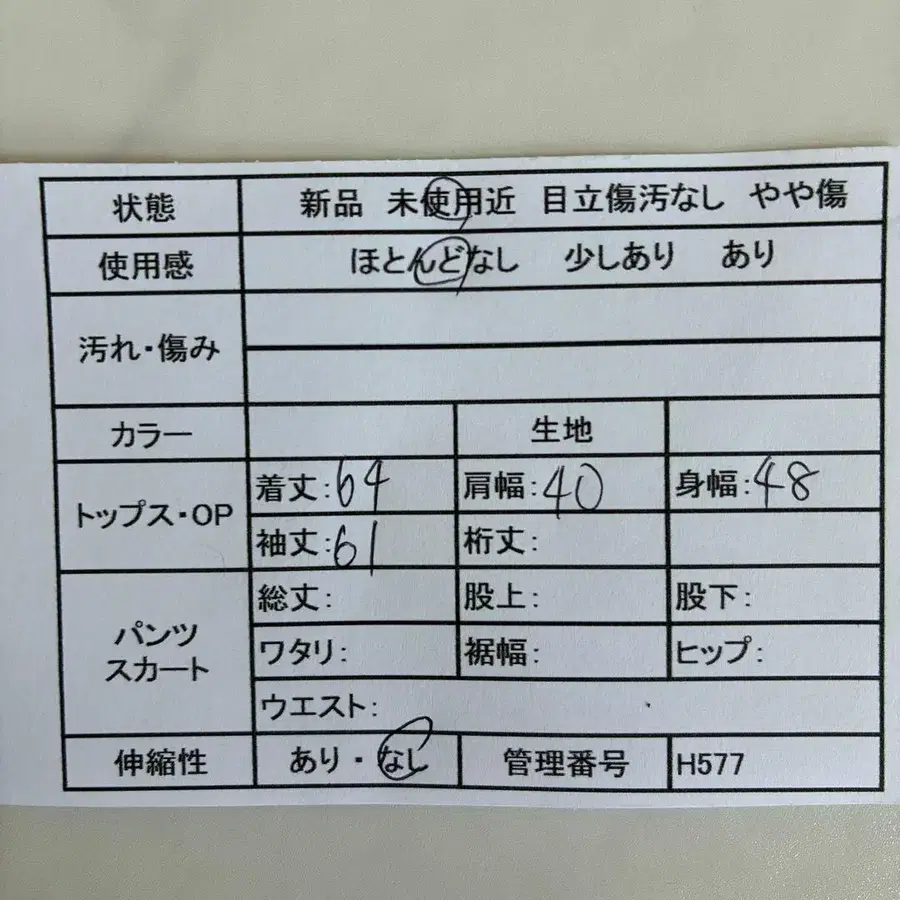 状態 新品 未使用近 目立傷汚なし やや傷
使用感 ほとんどなし 少しあり あり
汚れ・傷み
カラー 生地
トップス・OP 着丈:64 肩幅:40 身幅:48
袖丈:61 裄丈:
パンツ スカート 総丈: 股上: 股下:
ワタリ: 裾幅: ヒップ:
ウエスト:
伸縮性 あり・なし 管理番号 H577